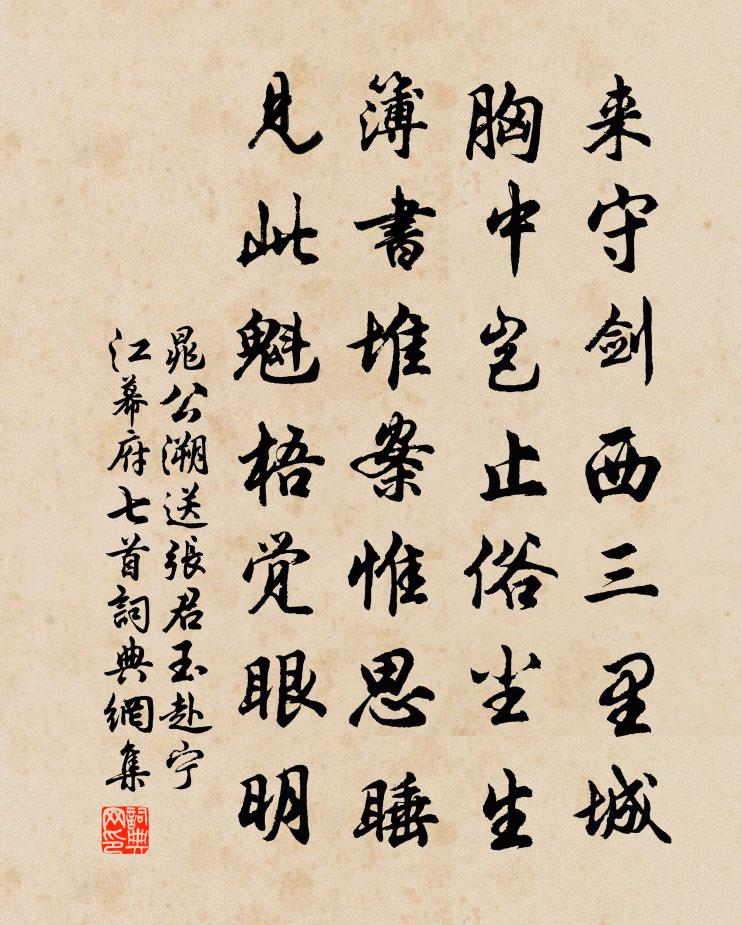 来守剑西三里城
胸中岂止俗尘生
簿書堆案惟思睡
見此魁梧觉眼明
晁公溯送張君玉赴宁
江幕府七首詞典網集
詞典
网印